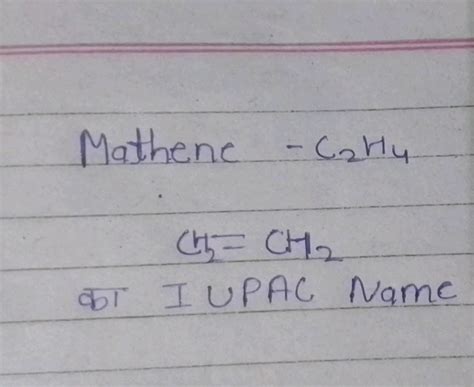 Mathene - C₂H₄
CH₂ = CH₂
का IUPAC Name